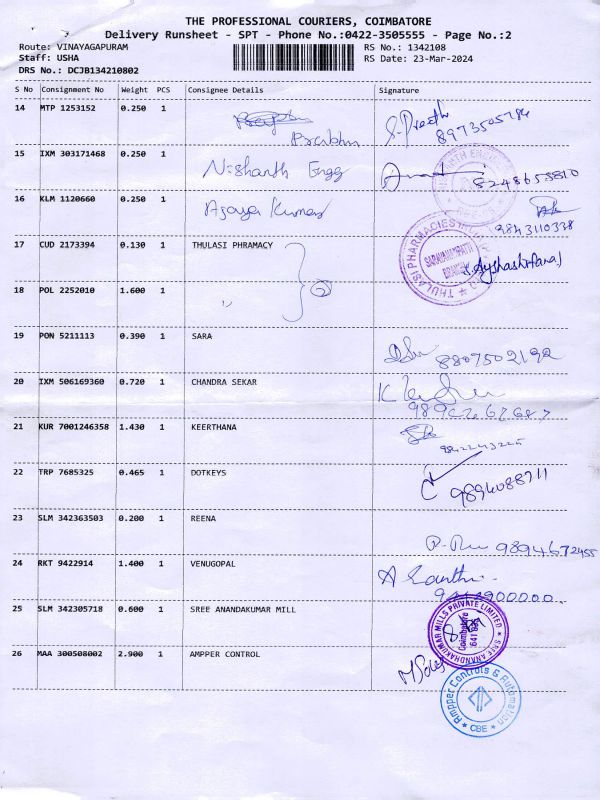 THE PROFESSIONAL COURIERS, COIMBATORE
Delivery Runsheet - SPT - Phone No.:0422-3505555 - Page No.:2
Route: VINAYAGAPURAM RS No.: 1342108
Staff: USHA RS Date: 23-Mar-2024
DRS No.: DCJB134210802
S No Consignment No Weight PCS Consignee Details Signature
14 MTP 1253152 0.250 1 Prabhu S. Preethi
8973505784
15 IXM 303171468 0.250 1 Nishanth Engg 8248655810
16 KLM 1120660 0.250 1 Ajaya Kumar
9843110338
17 CUD 2173394 0.130 1 THULASI PHRAMACY
THULASI PHARMACIES
SARAVANAMPATTI
BRANCH
18 POL 2252010 1.600 1 " 2
19 PON 5211113 0.390 1 SARA
8807502192
20 IXM 506169360 0.720 1 CHANDRA SEKAR
21 KUR 7001246358 1.430 1 KEERTHANA
9842243225
22 TRP 7685325 0.465 1 DOTKEYS
9894088711
23 SLM 342363503 0.200 1 REENA
9894672455
24 RKT 9422914 1.400 1 VENUGOPAL
25 SLM 342305718 0.600 1 SREE ANANDAKUMAR MILL
SREE ANANDHAKUMAR MILLS PRIVATE LIMITED
Coimbatore
26 MAA 300508002 2.900 1 AMPPER CONTROL
Ampper Controls & Automation
CBE